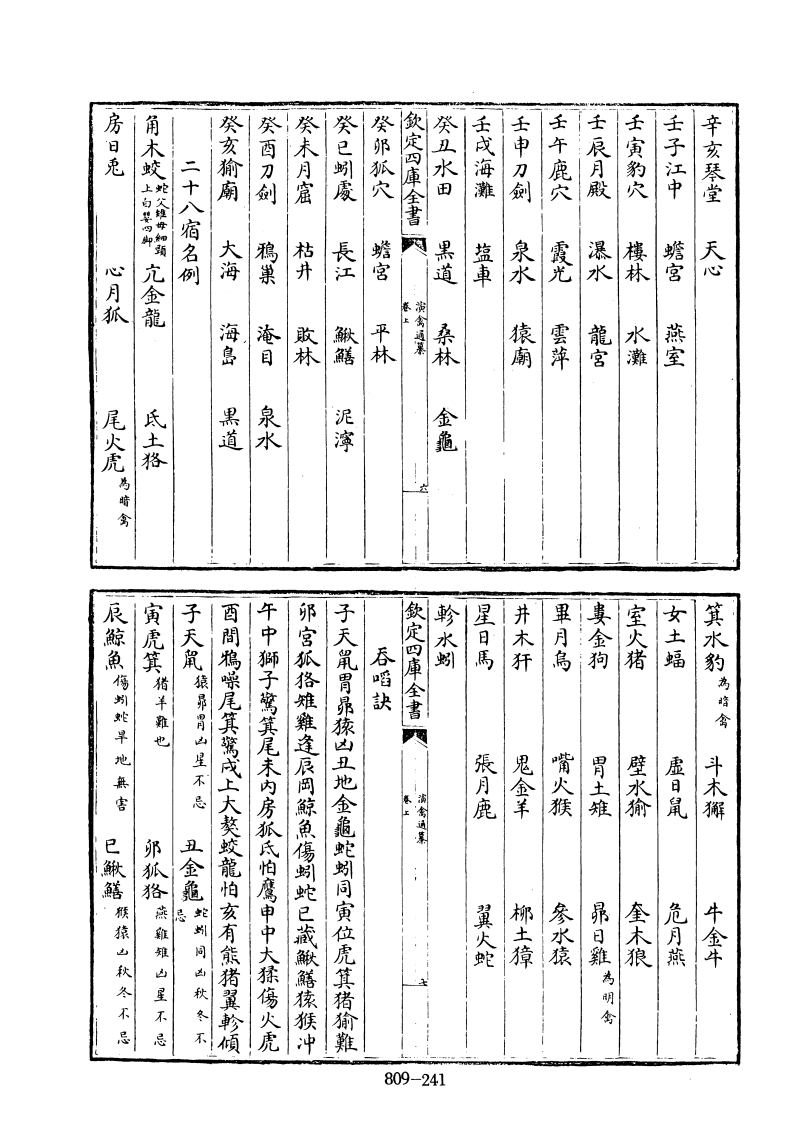 辛亥琴堂　天心
壬子江中　蟾宮　燕室
壬寅豹穴　樓林　水灘
壬辰月殿　瀑水　龍宮
壬午鹿穴　霞光　雲萍
壬申刀劍　泉水　猿廟
壬戌海灘　塩車
癸丑水田　黒道　桑林　金龜
欽定四庫全書　演禽通纂　卷上　六
癸卯狐穴　蟾宮　平林
癸巳蚓處　長江　鰍鱔　泥濘
癸未月窟　枯井　敗林
癸酉刀劍　鴉巢　淹目　泉水
癸亥㺄廟　大海　海島　黒道
二十八宿名例
角木蛟 蛇父雉母細頸上白嬰四脚　亢金龍　氐土狢
房日兎　心月狐　尾火虎 為暗禽
箕水豹 為暗禽　斗木獬　牛金牛
女土蝠　虛日鼠　危月燕
室火猪　壁水㺄　奎木狼
婁金狗　胃土雉　昴日雞 為明禽
畢月烏　嘴火猴　參水猿
井木犴　鬼金羊　柳土獐
星日馬　張月鹿　翼火蛇
軫水蚓
欽定四庫全書　演禽通纂　卷上　七
吞啗訣
子天鼠胃昴猿凶丑地金龜蛇蚓同寅位虎箕猪㺄難
卯宮狐狢雉雞逢辰岡鯨魚傷蚓蛇巳藏鰍鱔猿猴冲
午中獅子驚箕尾未内房狐氐怕鷹申中大猱傷火虎
酉間鴉噪尾箕驚戌上大獒蛟龍怕亥有熊猪翼軫傾
子天鼠 猿昴胃凶星不忌　丑金龜 蛇蚓同凶秋冬不忌
寅虎箕 猪羊難也　卯狐狢 燕雞雉凶星不忌
辰鯨魚 傷蚓蛇旱地無害　巳鰍鱔 猴猿凶秋冬不忌
809-241